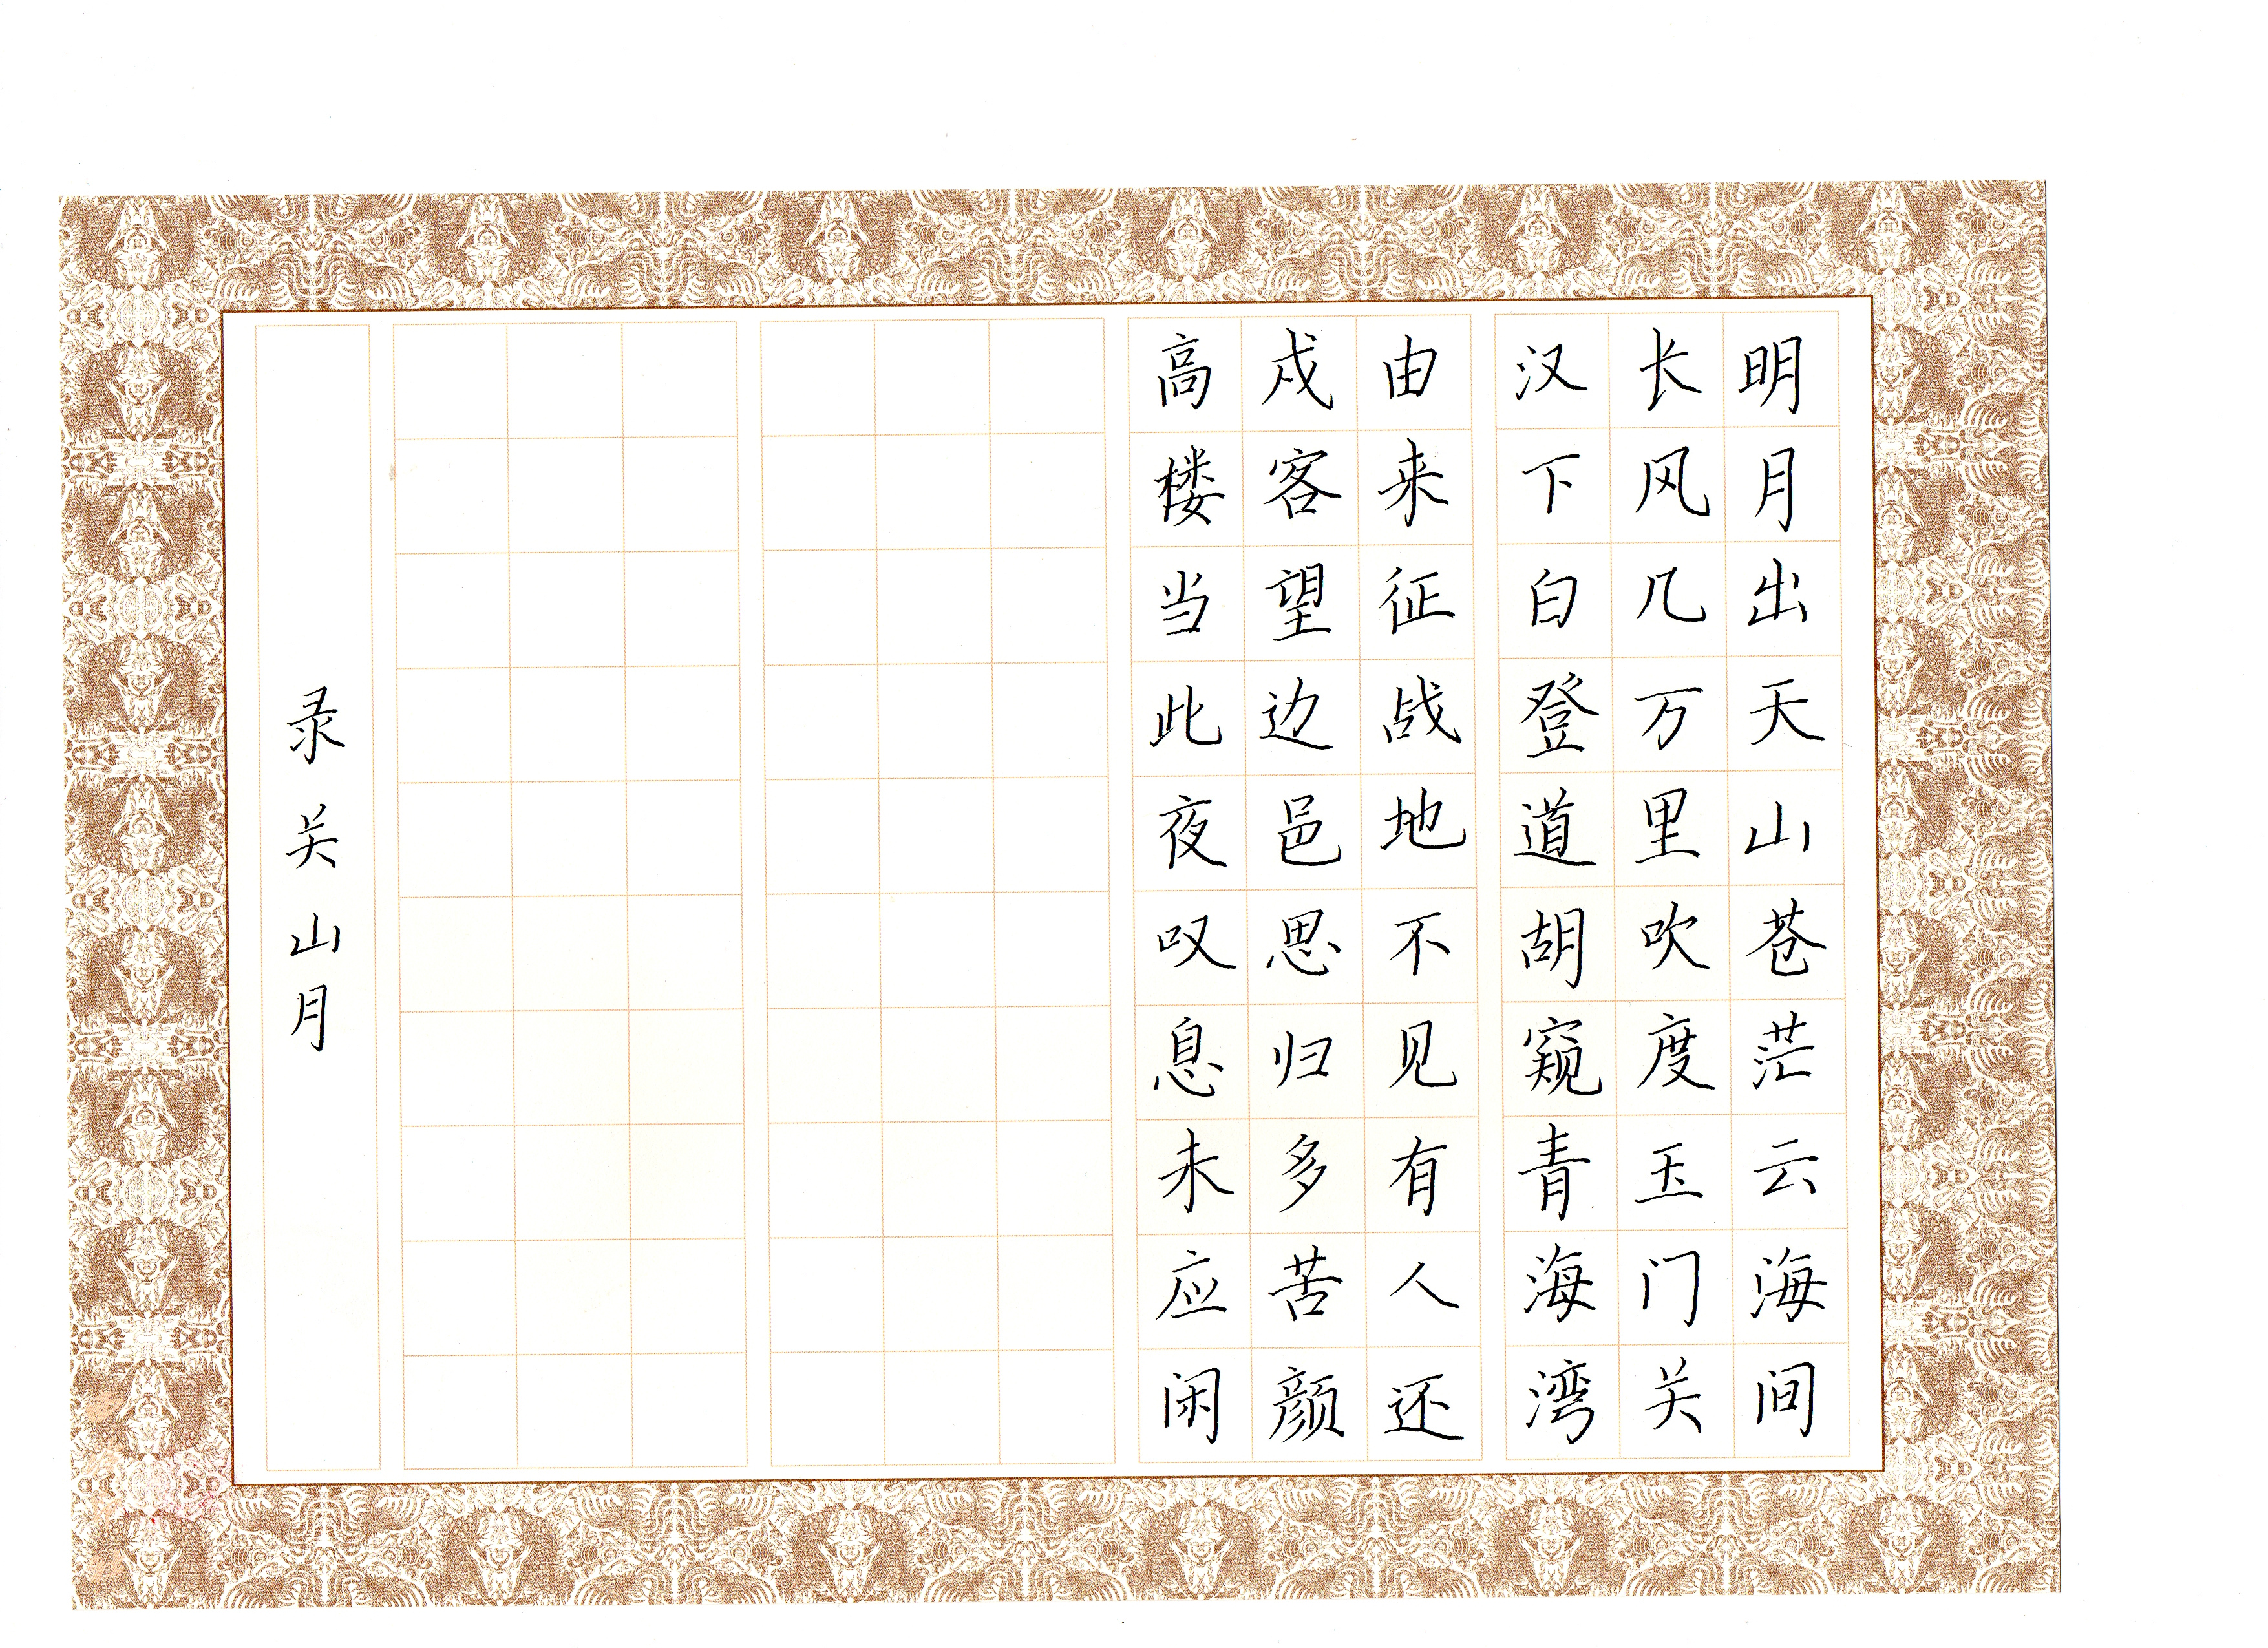 明月出天山苍茫云海间
长风几万里吹度玉门关
汉下白登道胡窥青海湾
由来征战地不见有人还
戍客望边邑思归多苦颜
高楼当此夜叹息未应闲
录关山月